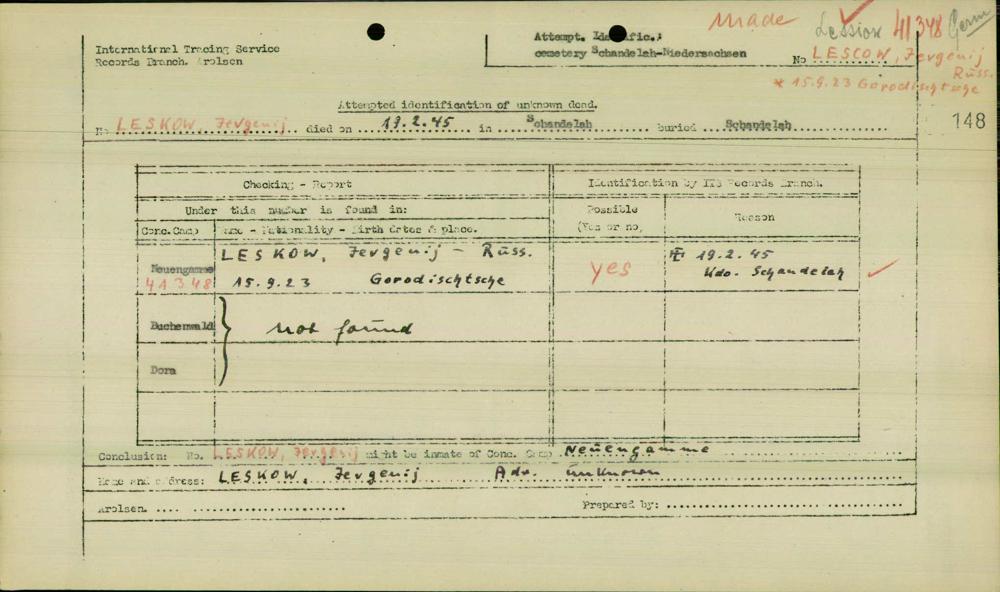 made Lession 41348 Germ
International Tracing Service
Records Branch. Arolsen
Attempt. Identific.:
cemetery Schandelah-Niedersachsen
No LESCOW, Jevgenij
Russ.
* 15.9.23 Gorodischtsche
Attempted identification of unknown dead.
No LESKOW, Jevgenij died on 19.2.45 in Schandelah buried Schandelah
148
Checking - Report
Identification by ITS Records Branch.
Under this number is found in:
Possible
(Yes or no,
Reason
Conc. Camp
Name - Nationality - Birth dates & place.
Neuengamme
41348
LESKOW, Jevgenij - Russ.
15.9.23 Gorodischtsche
yes
19.2.45
Kdo. Schandelah
Buchenwald
not found
Dora
Conclusion: No. LESKOW, Jevgenij might be inmate of Conc. Camp Neuengamme
Name and address: LESKOW, Jevgenij Adr. unknown
Arolsen. .... ........................
Prepared by: ........................